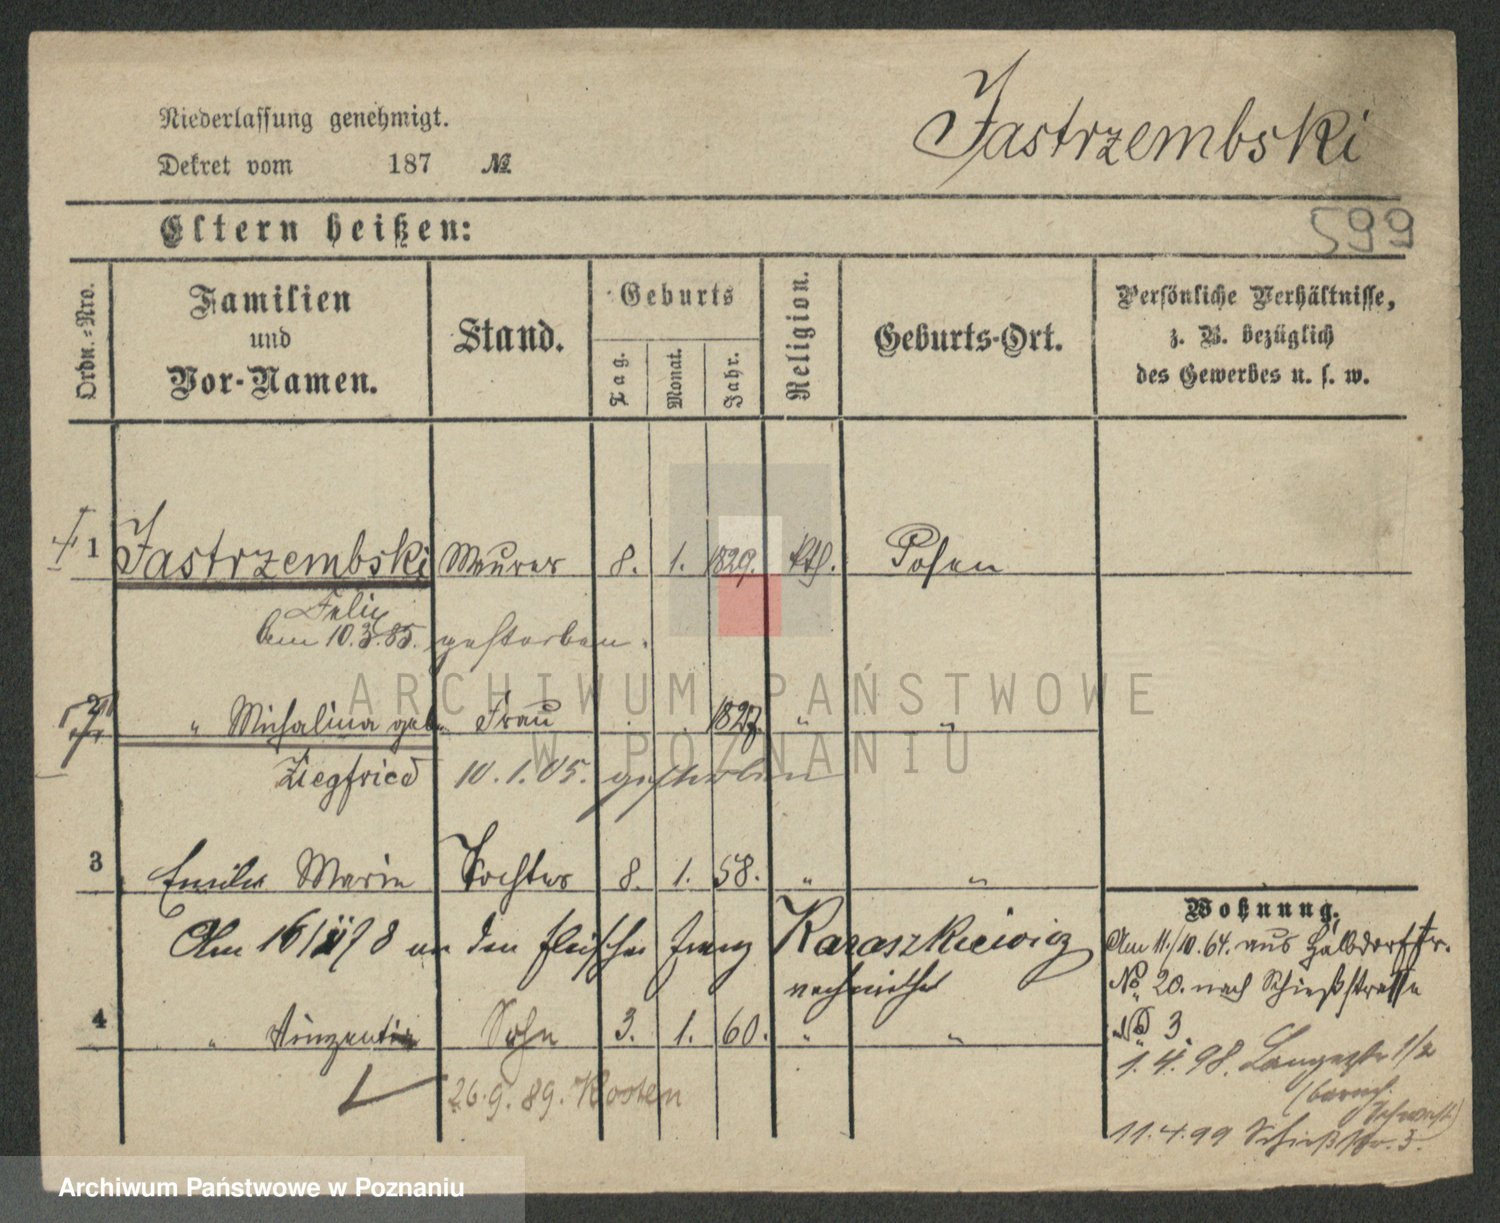 Niederlassung genehmigt.
Dekret vom 187 №
Jastrzembski
599
Eltern heißen:
Ordn.-Nro.
Familien und Vor-Namen.
Stand.
Geburts
Tag.
Monat.
Jahr.
Religion.
Geburts-Ort.
Persönliche Verhältnisse,
z. B. bezüglich
des Gewerbes u. s. w.
1 Jastrzembski Maurer 8. 1. 1829. kth. Posen
Felix
Am 10.3.85. gestorben.
2 " Michalina geb. Frau 1827 " "
Ziegfried 10.1.05. gestorben
3 Emilie Marie Tochter 8. 1. 58. " "
Am 16/ 78 an den Fleischer Franz Karaszkiewicz
verheirathet
4 " Vinzentin Sohn 3. 1. 60. " "
26.9.89. Kosten
Wohnung.
Am 11./10.64. aus Halbdorfstr.
No 20. nach Schießstraße
No 3.
1.4.98. Langestr 1/2
11.4.99 Schießstr. 3.
ARCHIWUM PAŃSTWOWE
W POZNANIU
Archiwum Państwowe w Poznaniu